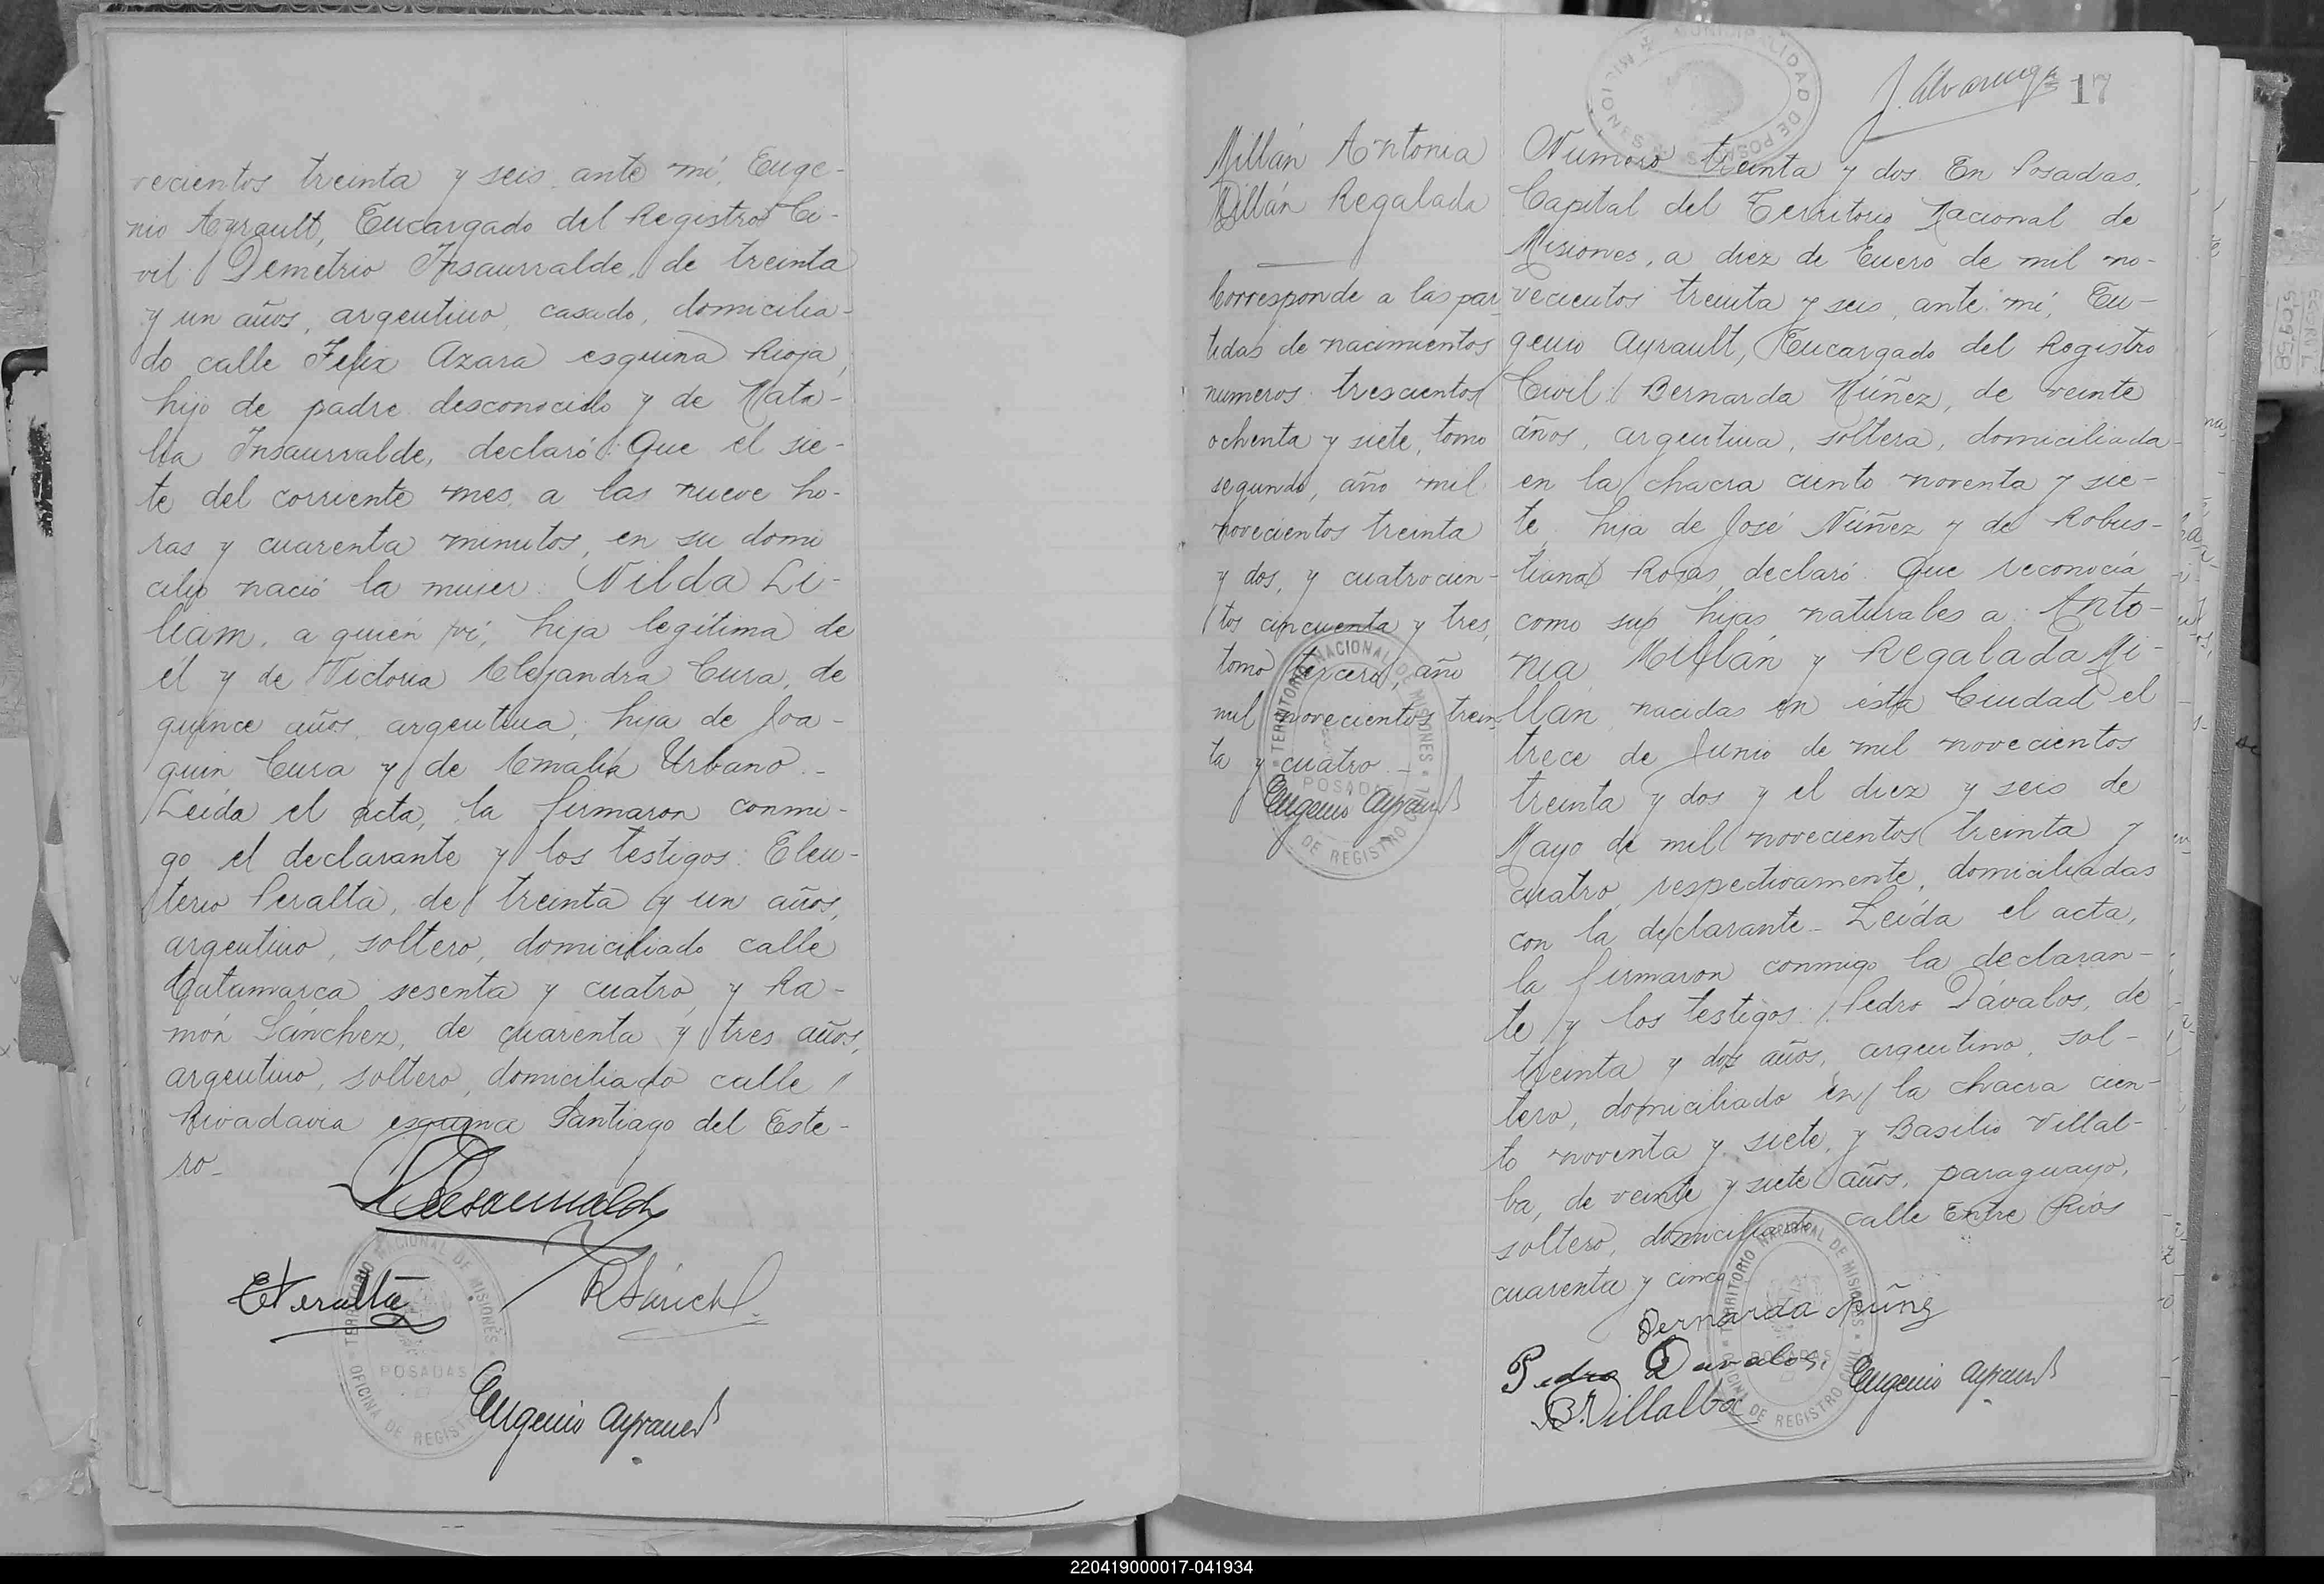 vecientos treinta y seis, ante mí, Euge-
nio Ayrault, Encargado del Registro Ci-
vil: Demetrio Insaurralde, de treinta
y un años, argentino, casado, domicilia-
do calle Felix Azara esquina Rioja,
hijo de padre desconocido y de Nata-
lia Insaurralde, declaró: Que el sie-
te del corriente mes, a las nueve ho-
ras y cuarenta minutos, en su domi
cilio nació la mujer: Nilda Li-
liam, a quien ví, hija legítima de
él y de Victoria Alejandra Cura, de
quince años, argentina, hija de Joa-
quin Cura y de Amalia Urbano.-
Leída el acta, la firmaron conmi-
go el declarante y los testigos: Eleu-
terio Peralta, de treinta y un años,
argentino, soltero, domiciliado calle
Catamarca sesenta y cuatro, y Ra-
món Sánchez, de cuarenta y tres años,
argentino, soltero, domiciliado calle
Rivadavia esquina Santiago del Este-
ro-
EPeralta
Eugenio Ayrault
TERRITORIO NACIONAL DE MISIONES
POSADAS
OFICINA DE REGISTRO
MUNICIPALIDAD DE POSADAS MISIONES
J. Alvarenga
17
Millán Antonia
Millán Regalada
Corresponde a las par
tidas de nacimientos
numeros trescientos
ochenta y siete, tomo
segundo, año mil
novecientos treinta
y dos, y cuatrocien-
tos cincuenta y tres,
tomo tercero, año
mil novecientos trein-
ta y cuatro.-
Eugenio Ayrault
TERRITORIO NACIONAL DE MISIONES
POSADAS
DE REGISTRO
Numero treinta y dos. En Posadas,
Capital del Territorio Nacional de
Misiones, a diez de Enero de mil no-
vecientos treinta y seis, ante mí, Eu-
genio Ayrault, Encargado del Registro
Civil: Bernarda Núñez, de veinte
años, argentina, soltera, domiciliada
en la chacra ciento noventa y sie-
te, hija de José Núñez y de Robus-
tiana Rojas, declaró: Que reconocía
como sus hijas naturales a: Anto-
nia Millán y Regalada Mi-
llán, nacidas en ésta Ciudad el
trece de Junio de mil novecientos
treinta y dos y el diez y seis de
Mayo de mil novecientos treinta y
cuatro, respectivamente, domiciliadas
con la declarante- Leída el acta,
la firmaron conmigo la declaran-
te y los testigos: Pedro Dávalos, de
treinta y dos años, argentino, sol-
tero, domiciliado en la chacra cien-
to noventa y siete, y Basilio Villal-
ba, de veinte y siete años, paraguayo,
soltero, domiciliado calle Entre Ríos
cuarenta y cinco
Bernarda Núñez
Pedro Davalos
Eugenio Ayrault
B. Villalba
TERRITORIO NACIONAL DE MISIONES
POSADAS
OFICINA DE REGISTRO CIVIL
220419000017-041934